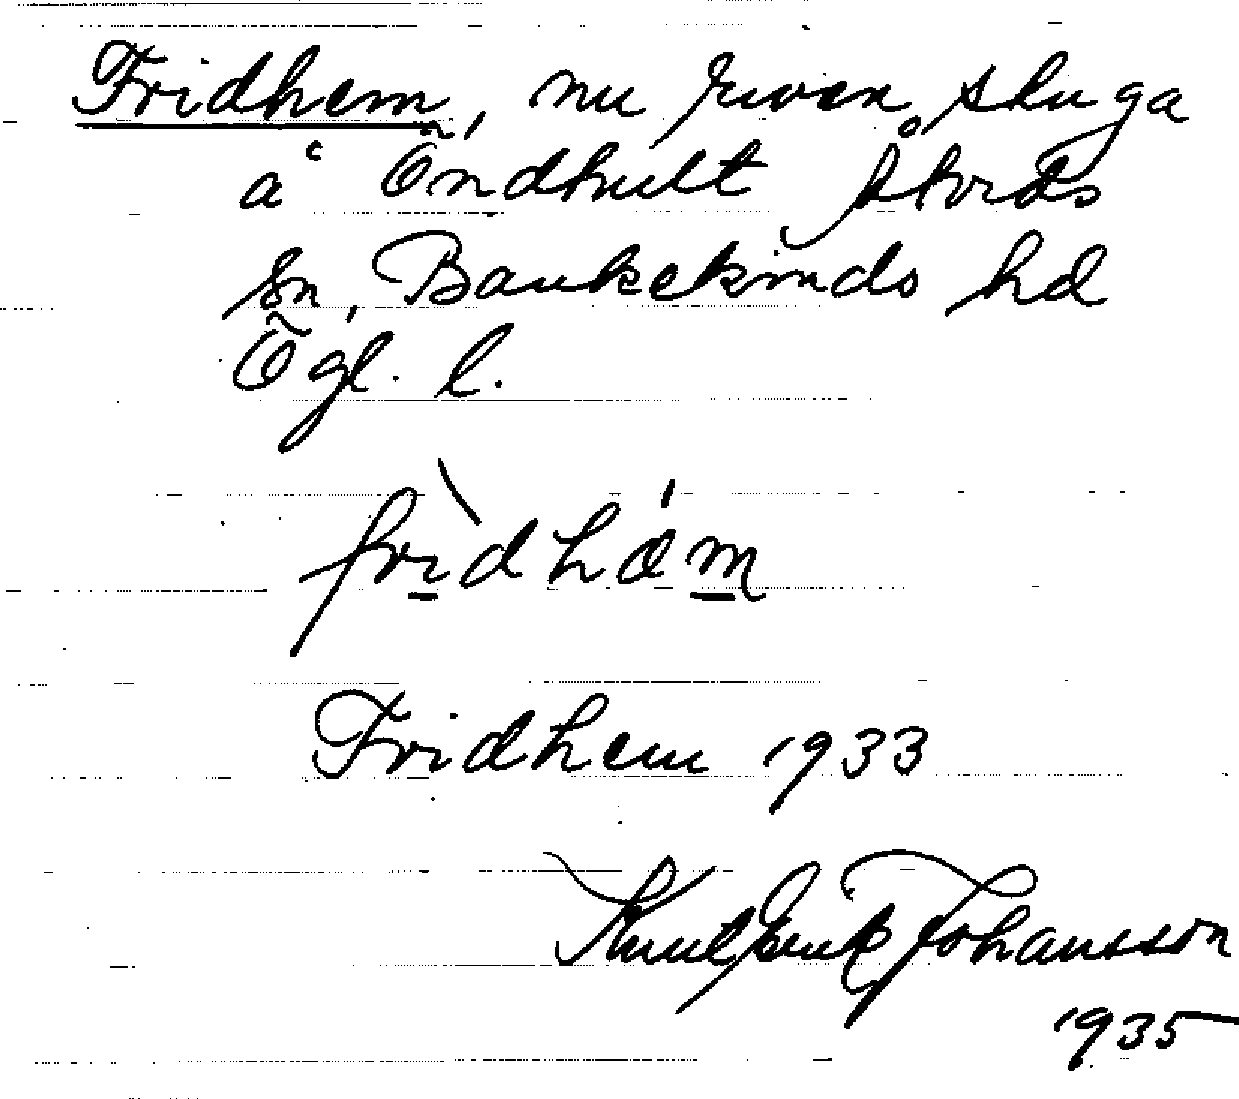 Fridhem, nu riven stuga
å Öndhult Åtvids
sn, Bankekinds hd
Ögl. l.
fridhem
Fridhem 1933
Knut Erik Johansson
1935